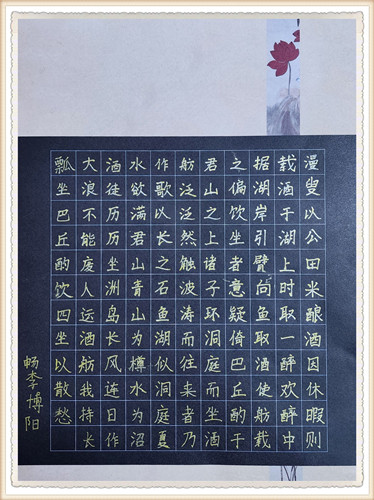 漫叟以公田米酿酒因休暇则
载酒于湖上时取一醉欢醉中
据湖岸引臂向鱼取酒使舫载
之偏饮坐者意疑倚巴丘酌于
君山之上诸子环洞庭而坐酒
舫泛泛然触波涛而往来者乃
作歌以长之石鱼湖似洞庭夏
水欲满君山青山为樽水为沼
酒徒历历坐洲鸟长风连日作
大浪不能废人运酒舫我持长
瓢坐巴丘酌饮四坐以散愁
畅李博阳